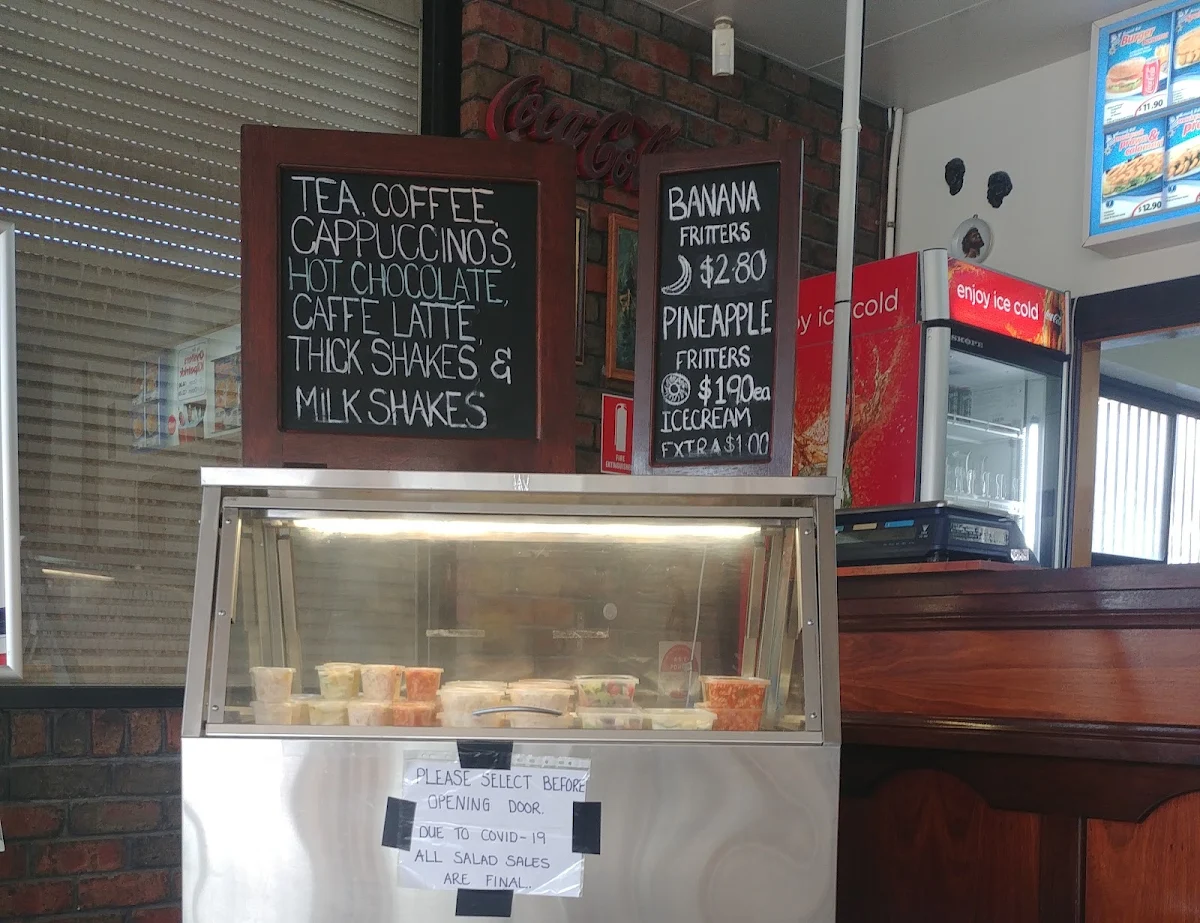 TEA, COFFEE,
CAPPUCCINO'S,
HOT CHOCOLATE,
CAFFE LATTE,
THICK SHAKES &
MILK SHAKES
Coca-Col
BANANA
FRITTERS
$2.80
PINEAPPLE
FRITTERS
$1.90ea
ICECREAM
EXTRA $1.00
FIRE
y ice cold
enjoy ice cold
SKOPE
Burger
$11.90
$12.90
PLEASE SELECT BEFORE
OPENING DOOR.
DUE TO COVID-19
ALL SALAD SALES
ARE FINAL.